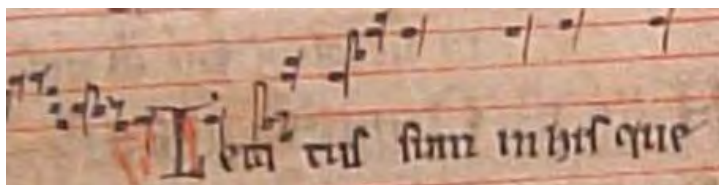 Leta tus sum in his que